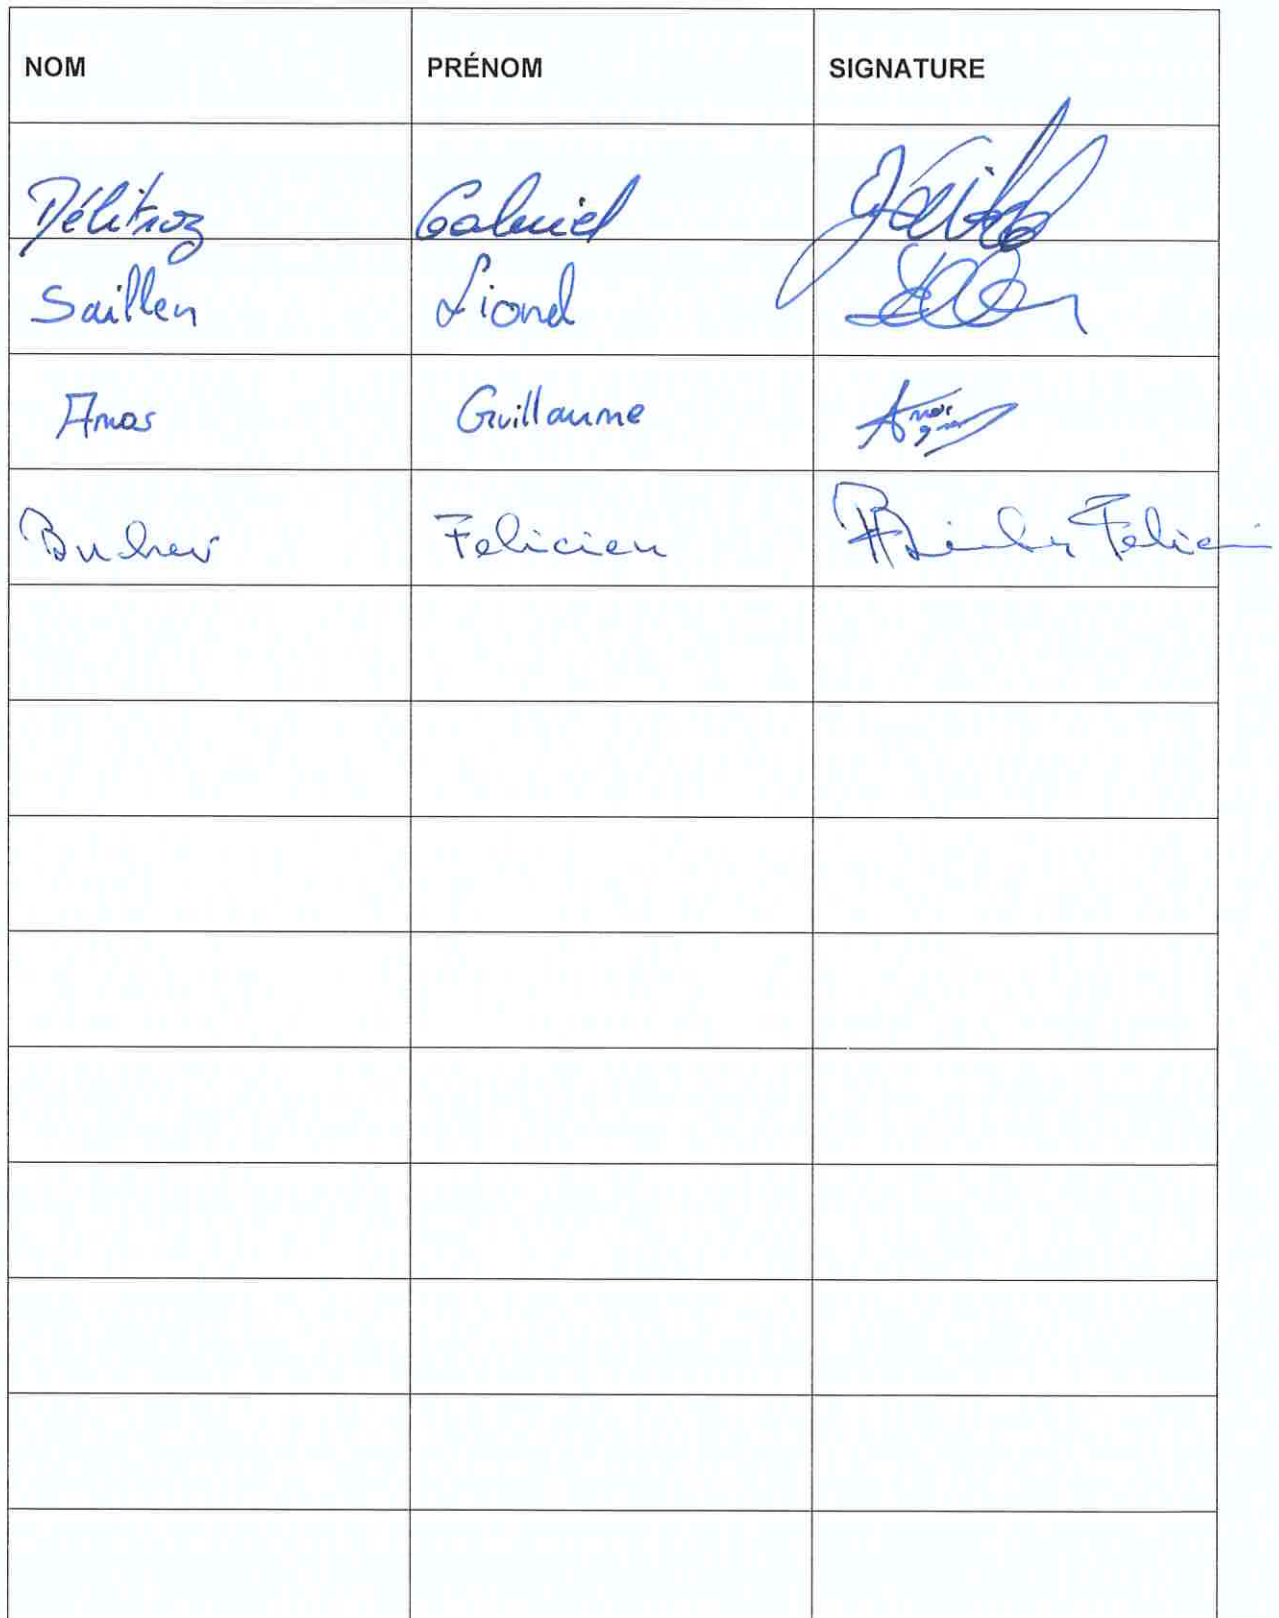 NOM PRÉNOM SIGNATURE
Délitroz Gabriel
Saillen Lionel
Amos Guillaume Amos
Bucher Felicien Felicien